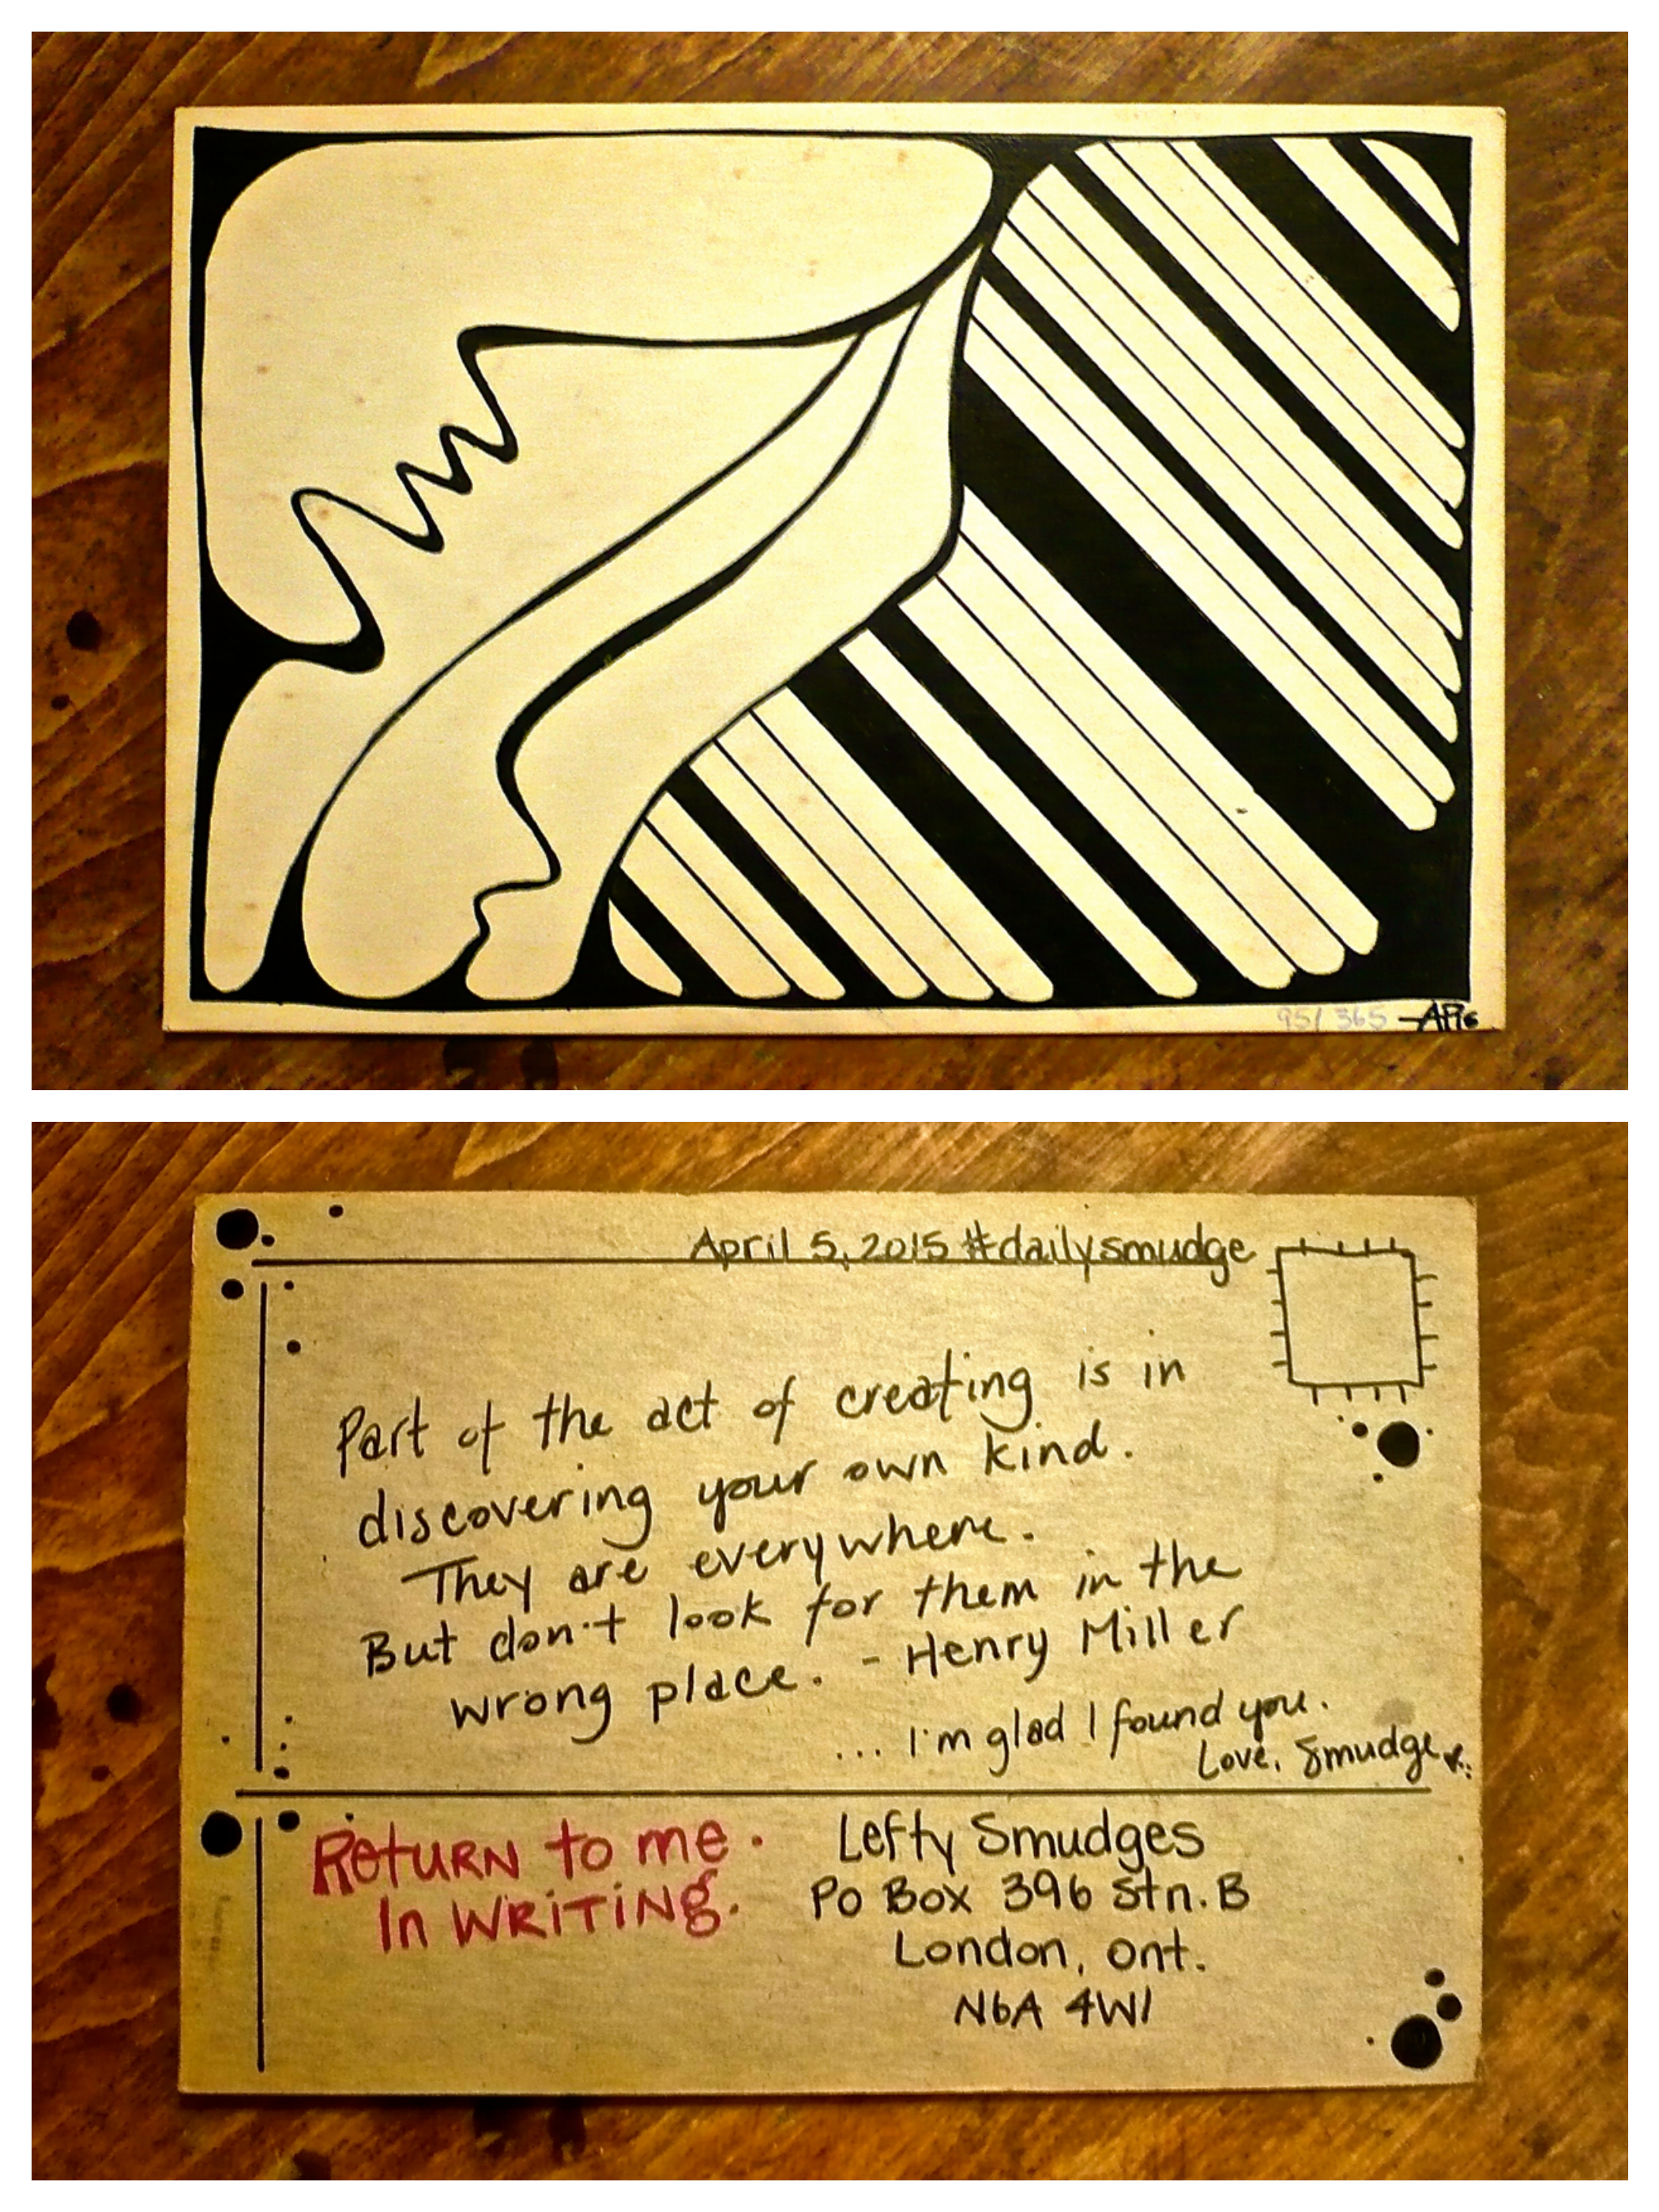 95/365
April 5, 2015 #dailysmudge
Part of the act of creating is in
discovering your own kind.
They are everywhere.
But don't look for them in the
wrong place. - Henry Miller
... I'm glad I found you.
Love, Smudge
Return to me.
In WRITING.
Lefty Smudges
Po Box 396 Stn. B
London, Ont.
N6A 4W1